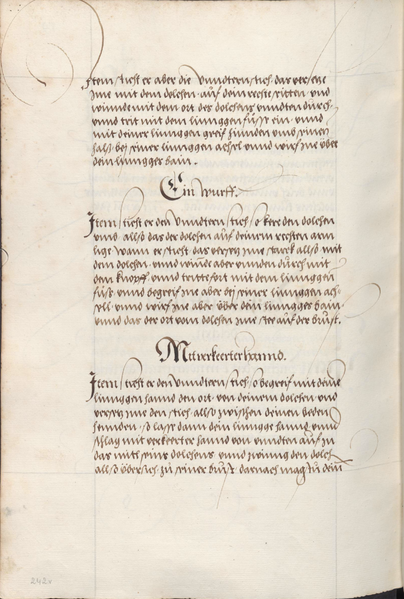 Item sticht er aber die Unndtern stich das versetze
Ime mit dem dolchen auf dein rechte sitten und
winnde mit dem ort des dolchens unndten durch
und trit mit dem linnggen fuss ein und
mit deiner linnggen greif hinden umb seinen
hals bei seiner linnggen achsel und wirf Ine über
dein linngges bain.
Ein Wurff.
Item sticht er den Unndtern stich so kere den dolchen
umb also das der dolchen auf deinem rechten arm
lige wann er sticht das versetz Ime starck also mit
dem dolchen und winde aber unden durch mit
dem knopff und tritt fort mit dem linnggen
fuß und begreif Ine aber bei seiner linnggen ach
sell und wirf Ine aber über dein linngges bain
unnd das der ort vom dolchen Ime stee auf der brust.
Mit verkeerter hannd.
Item sticht er den Unndtern stich so begreif mit deiner
linnggen hannd den ort von deinem dolchen und
versetz Ime den stich also zwischen deinen beden
hennden so lass dann dein linngge hannd unnd
schlag mit verkerter hannd von unndten auf In
das mittl seins dolchens und zwinng den dolch
also übersich zu seiner brust darnach mag tu dein
242v